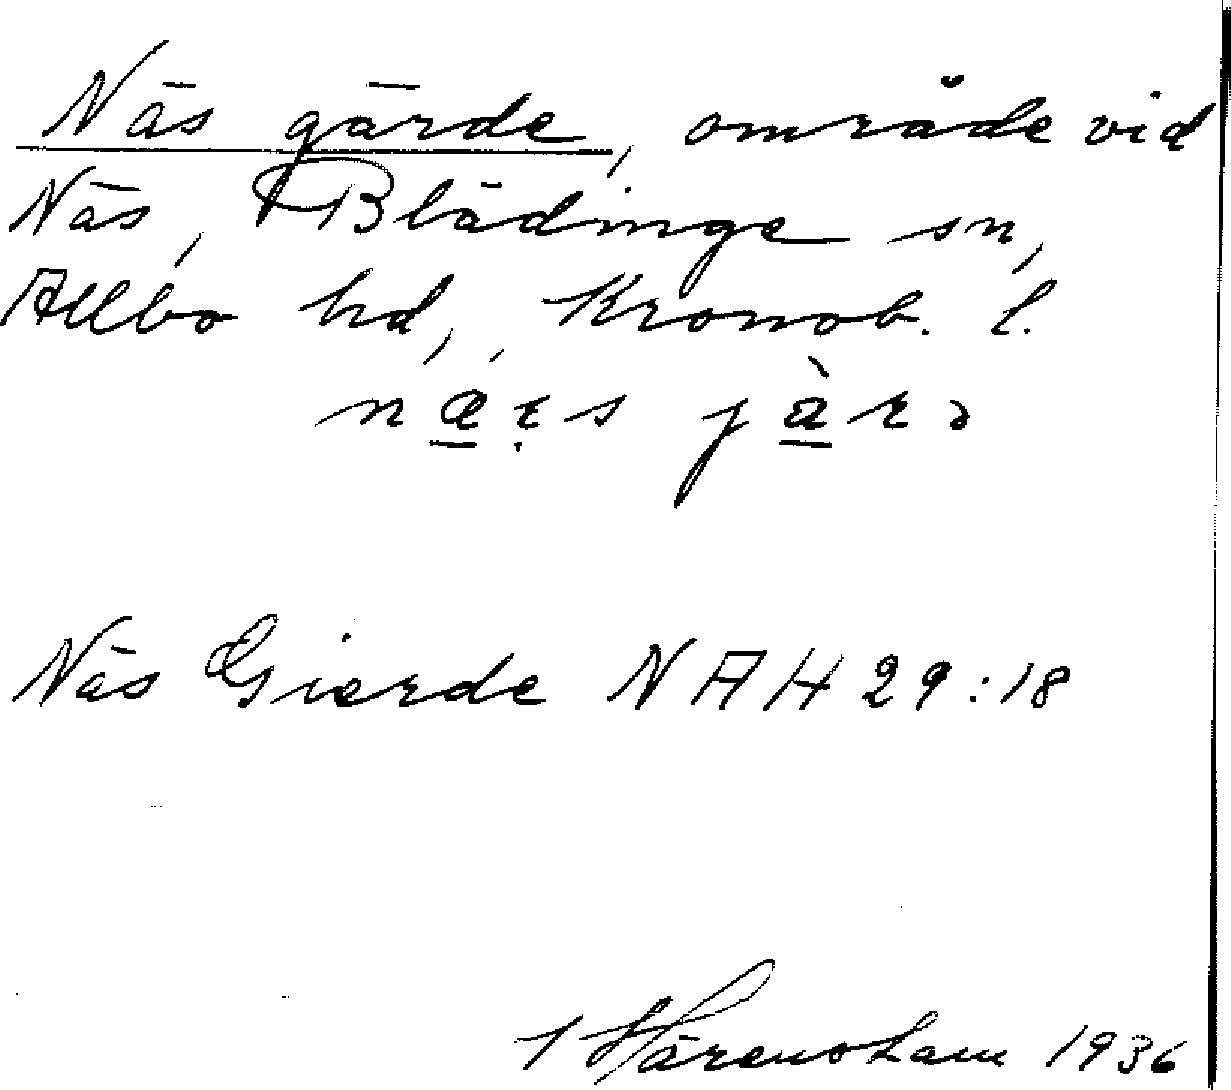 Näs gärde, område vid
Näs, Blädinge sn,
Allbo hd, Kronob. l.
næ̱ṛs jà̱rə
Näs Gierde NAH 29:18
1936